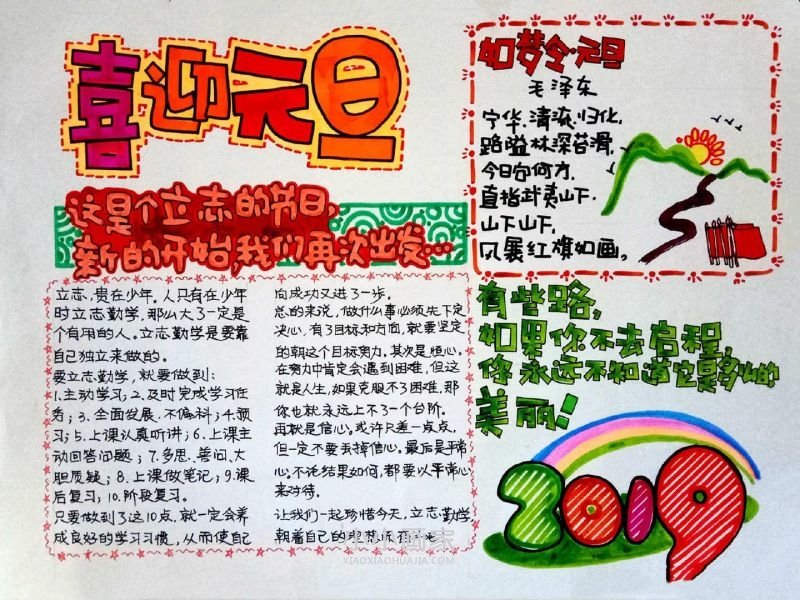 喜迎元旦
这是个立志的节日,
新的开始,我们再次出发…
立志,贵在少年,人只有在少年
时立志勤学,那么大了一定是
个有用的人。立志勤学是要靠
自己独立来做的。
要立志勤学,就要做到:
1.主动学习;2.及时完成学习任
务;3.全面发展,不偏科;4.预
习;5.上课认真听讲;6.上课主
动回答问题;7.多思、善问、大
胆质疑;8.上课做笔记;9.课
后复习;10.阶段复习。
只要做到了这10点,就一定会养
成良好的学习习惯,从而使自己
向成功又进了一步。
总的来说,做什么事必须先下定
决心,有了目标和方面,就要坚定
的朝这个目标努力。其次是恒心,
在努力中肯定会遇到困难,但这
就是人生,如果克服不了困难,那
你也就永远上不了一个台阶。
再就是信心。或许只差一点点,
但一定不要丢掉信心。最后是平常
心。不论结果如何,都要以平常心
来对待。
让我们一起珍惜今天,立志勤学,
朝着自己的
如梦令·元旦
毛泽东
宁化、清流、归化,
路隘林深苔滑,
今日向何方,
直指武夷山下.
山下山下,
风展红旗如画。
有些路,
如果你不去启程,
你永远不知道它是多么的
美丽!
2019
小小画家
XIAOXIAOHUAJIA.COM